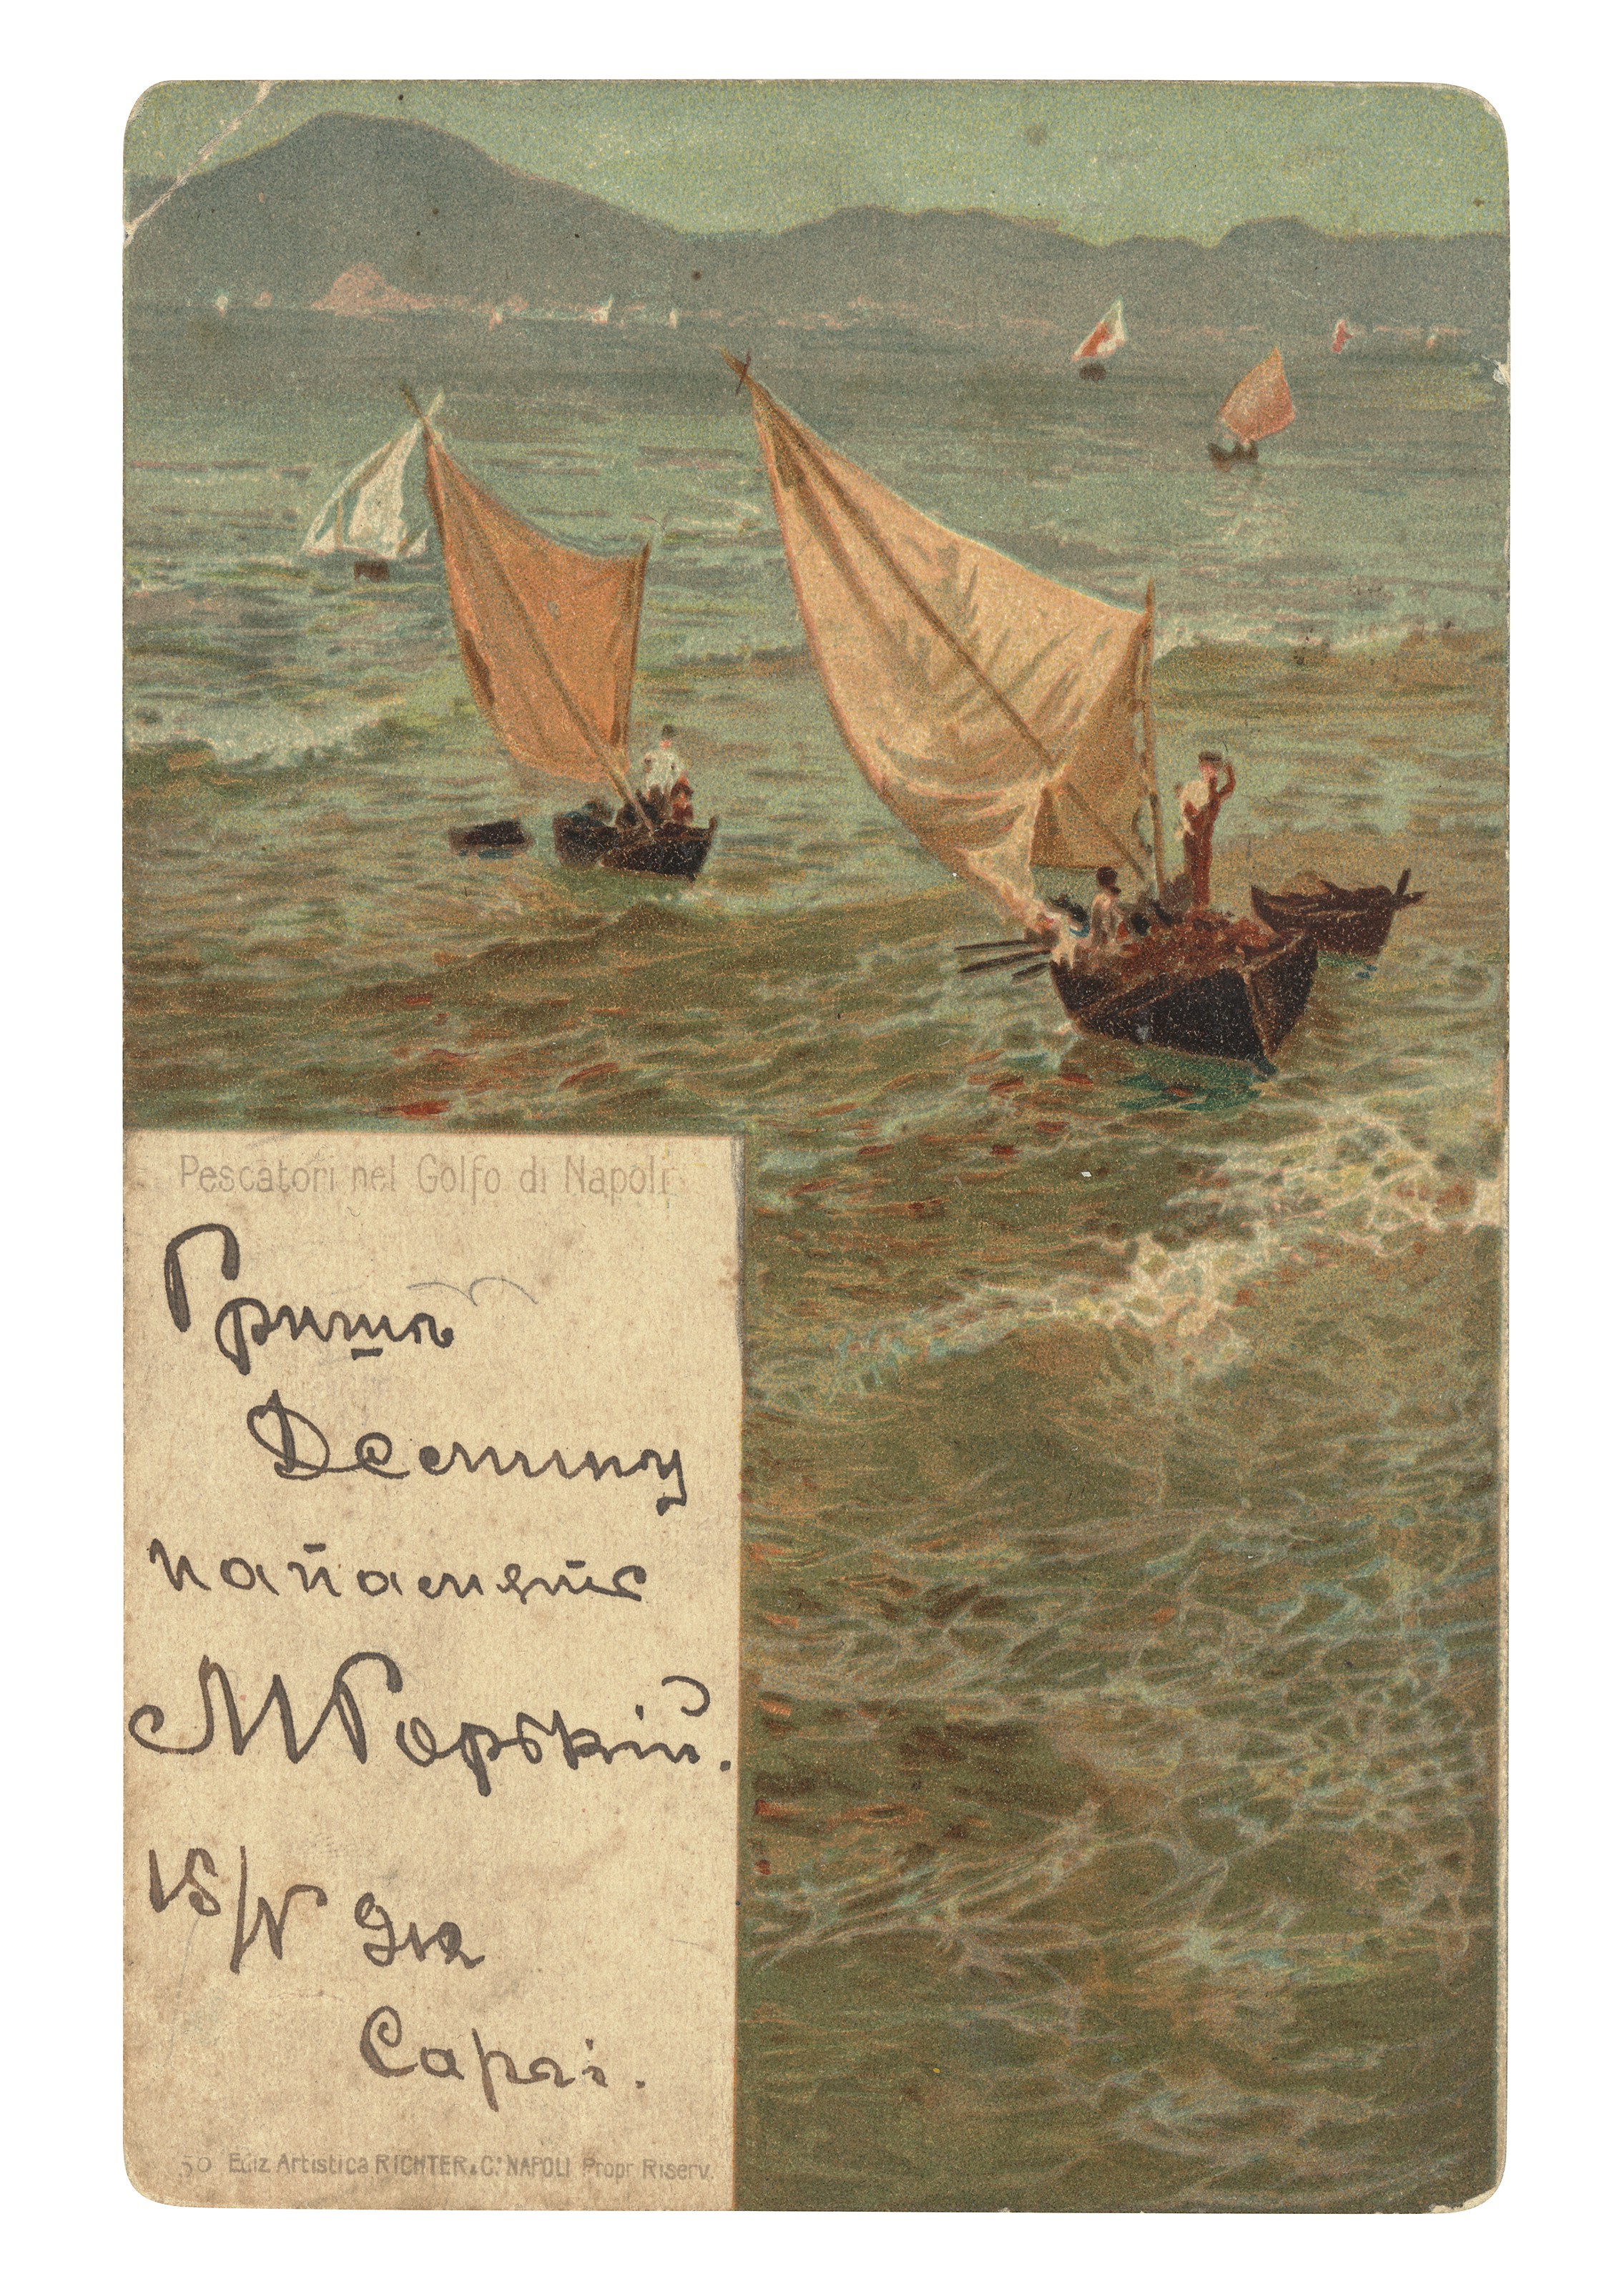 Pescatori nel Golfo di Napoli
Гриш&
Демину
на память
МГорькій.
15/IV 912
Capri.
50 Ediz Artistica RICHTER & C.º NAPOLI Propr Riserv.